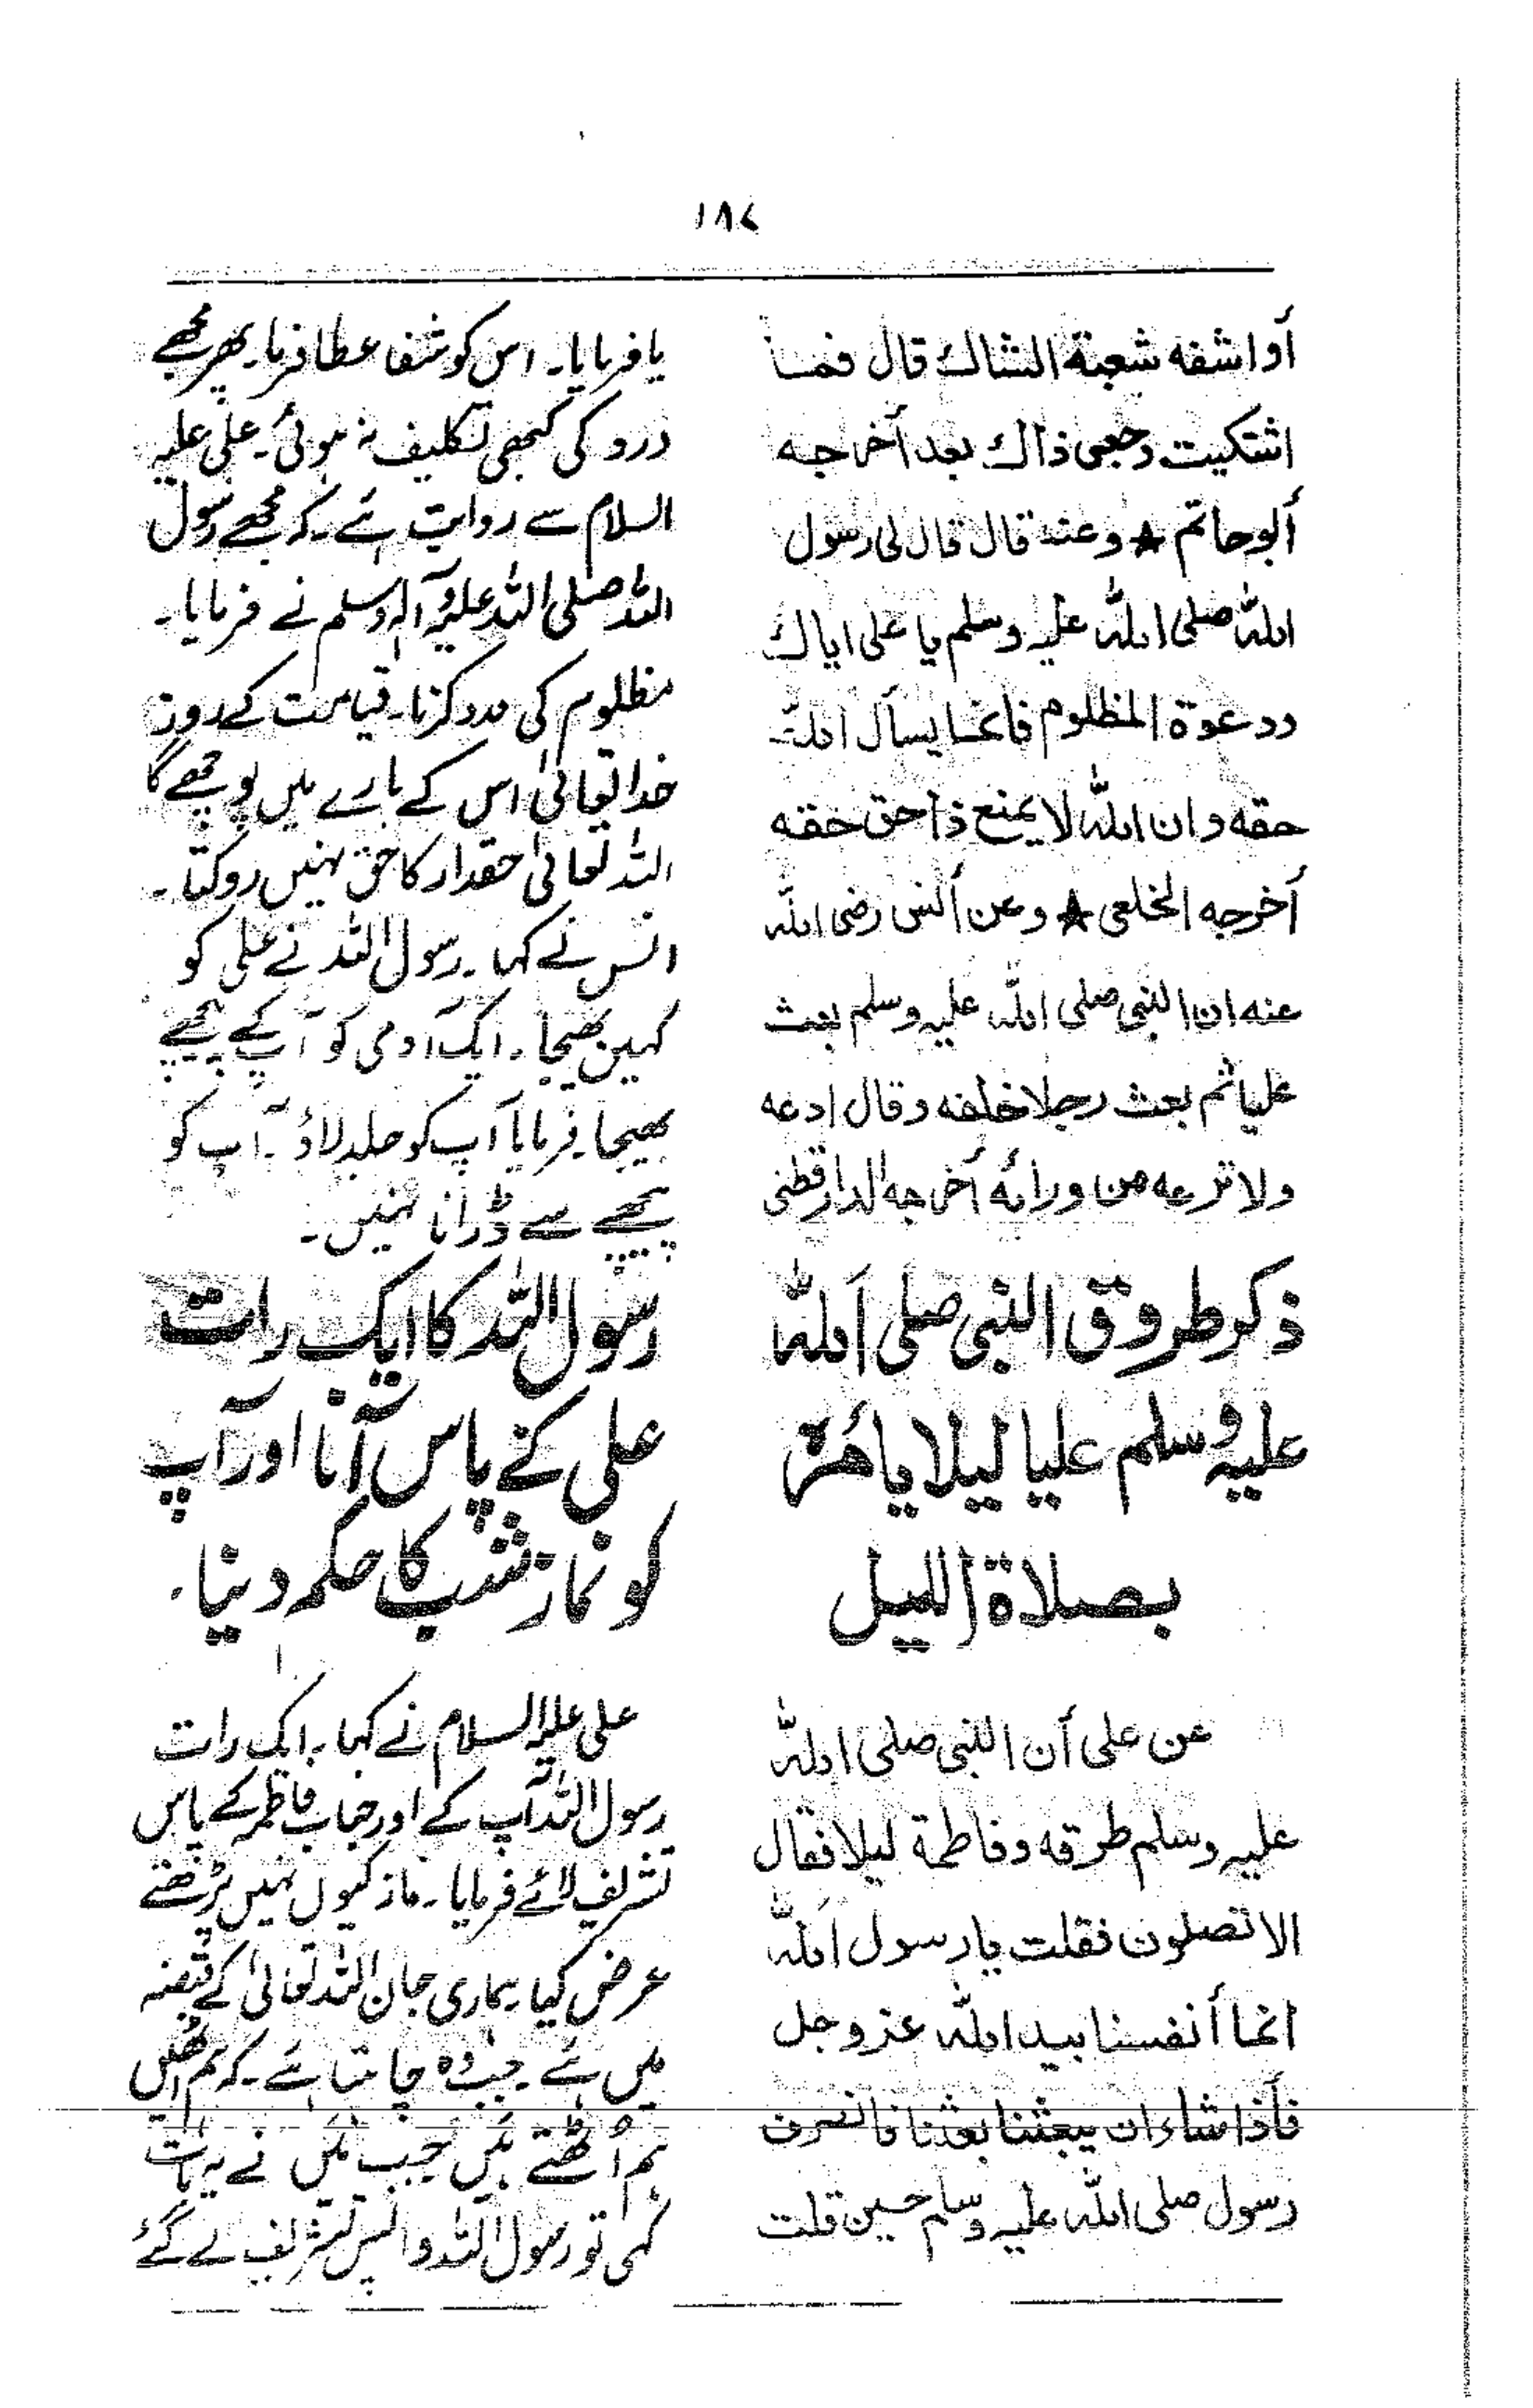 ۱۸۷
أو اشفه شعبة الشاك قال فما
اشتكيت وجعى ذاك بعد أخرجه
أبوحاتم ★ وعنه قال قال لى رسول
الله صلى الله عليه وسلم يا على اياك
ودعوة المظلوم فانما يسأل الله
حقه وان الله لا يمنع ذا حق حقه
أخرجه الخلعى ★ وعن أنس رضى الله
عنه ان النبى صلى الله عليه وسلم بعث
عليا ثم بعث رجلا خلفه وقال ادعه
ولا ترعه من ورائه أخرجه الدارقطنى
ذكر طروق النبى صلى الله
عليه وسلم عليا ليلا يأمره
بصلاة الليل
عن على أن النبى صلى الله
عليه وسلم طرقه وفاطمة ليلا فقال
الا تصلون فقلت يا رسول الله
انما أنفسنا بيد الله عزوجل
فأذا شاء ان يبعثنا بعثنا فانصرف
رسول صلى الله عليه وسلم حين قلت
یا فرمایا۔ اس کو شفا عطا فرما۔ پھر مجھے
درد کی کبھی تکلیف نہ ہوئی۔ علی علیہ
السلام سے روایت ہے۔ کہ مجھے رسول
اللہ صلی اللہ علیہ وآلہ وسلم نے فرمایا۔
مظلوم کی مدد کرنا۔ قیامت کے روز
خدا تعالیٰ اس کے بارے میں پوچھے گا
اللہ تعالیٰ حقدار کا حق نہیں روکتا۔
انس نے کہا۔ رسول اللہ نے علی کو
کہیں بھیجا۔ ایک آدمی کو آپ کے پیچھے
بھیجا۔ فرمایا آپ کو جلد لاؤ۔ آپ کو
پیچھے سے ڈرانا نہیں۔
رسول اللہ کا ایک رات
علی کے پاس آنا اور آپ
کو نماز شب کا حکم دینا۔
علی علیہ السلام نے کہا۔ ایک رات
رسول اللہ آپ کے اور جناب فاطمہ کے پاس
تشریف لائے فرمایا۔ ماز کیوں نہیں پڑھتے
عرض کیا۔ ہماری جان اللہ تعالیٰ کے قبضہ
میں ہے۔ جب وہ چاہتا ہے۔ کہ ہم اٹھیں
ہم اُٹھتے ہیں جب میں نے یہ بات
کہی تو رسول اللہ واپس تشریف لے گئے